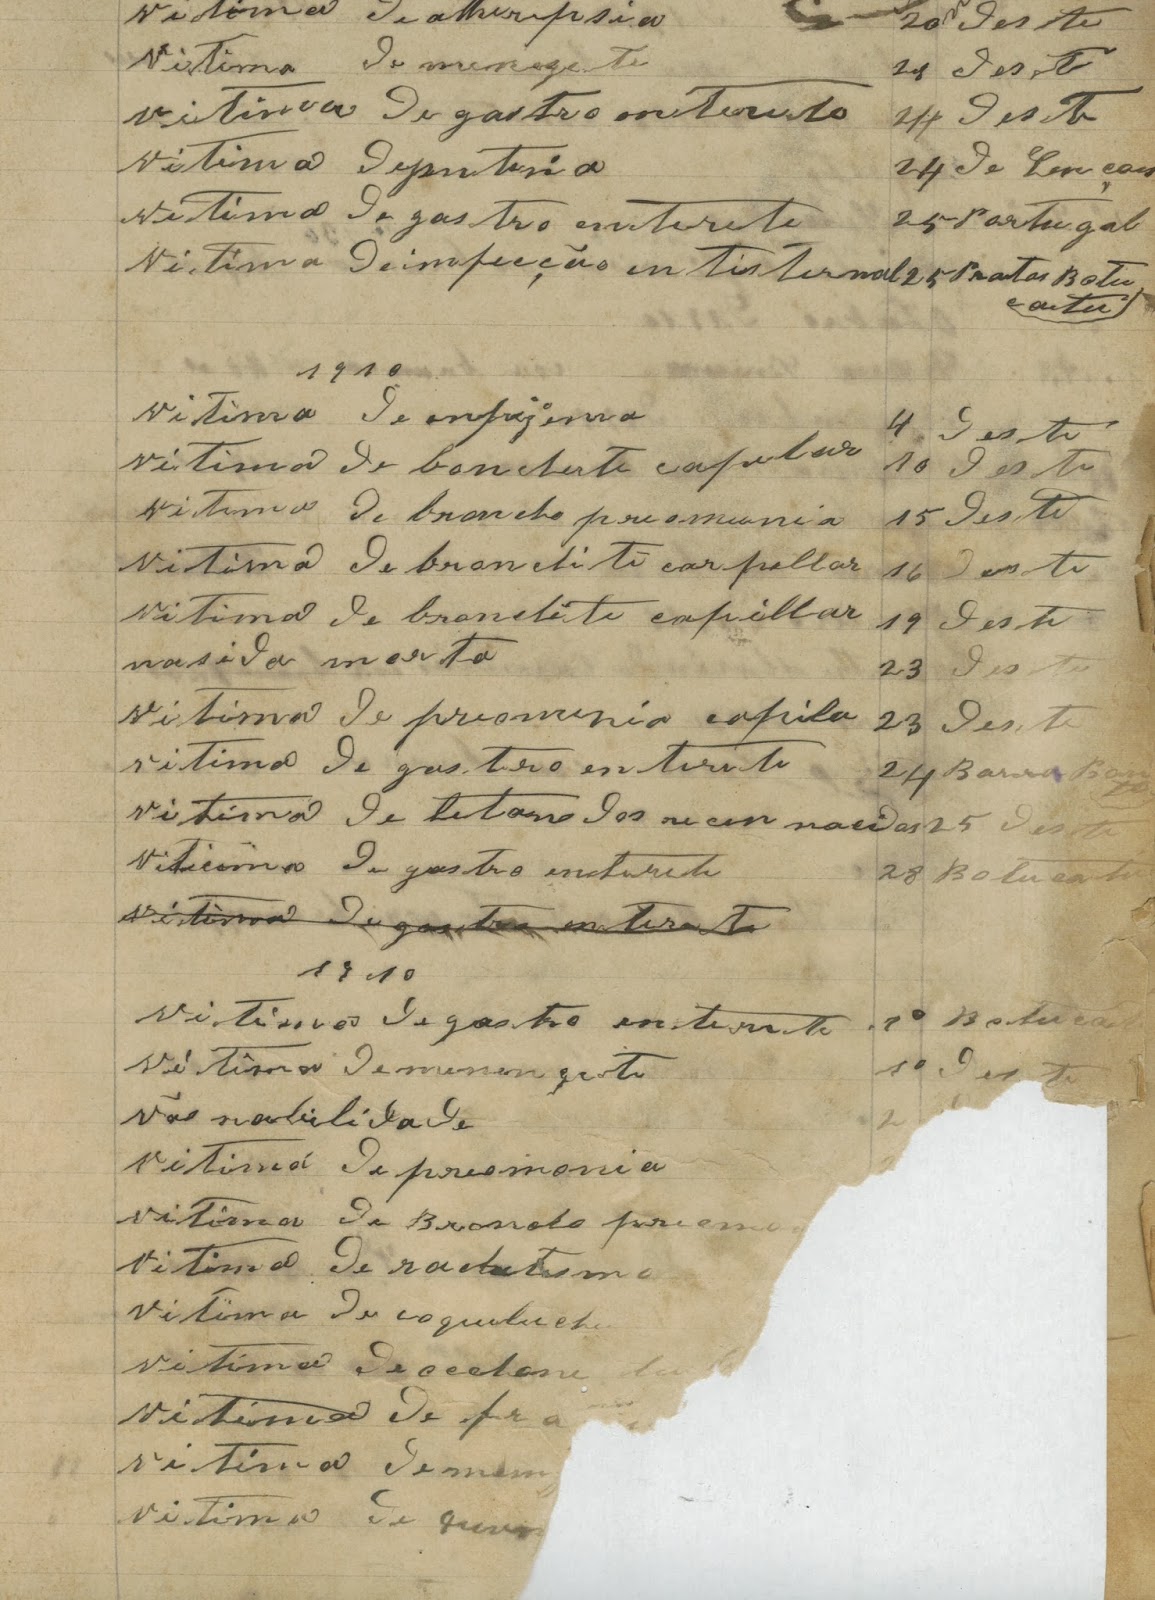 vitima de atherepsia 20 deste
vitima de menegete 21 deste
vitima de gastro entereto 24 deste
vitima deputeria 24 de Lençoes
vitima de gastro enterete 25 Portugal
vitima deimfecção entisternal 25 Pratas Botu
catu)
1910
vitima de enfizema 4 deste
vitima de bonchete capelar 10 deste
vitima de broncho preomunia 15 deste
vitima de bronchite carpellar 16 deste
vitima de bronchite capillar 19 deste
nasida morta 23 deste
vitima de preomunia capila 23 deste
vitima de gastro enterete 24 Barra Bon
vitima de tetano dos recen nacidos 25 deste
viticima de gastro enterete 28 Botucatu
vitima de gastro enterete
1910
vitima de gastro enterete 1º Botuca
vitima de menengete 1º deste
vão nabilidade 2
vitima de preomonia
vitima de Broncho preomo
vitima de rachetismo
vitima de coqueluche
vitima de
vitima de fra
vitima de men
vitima de